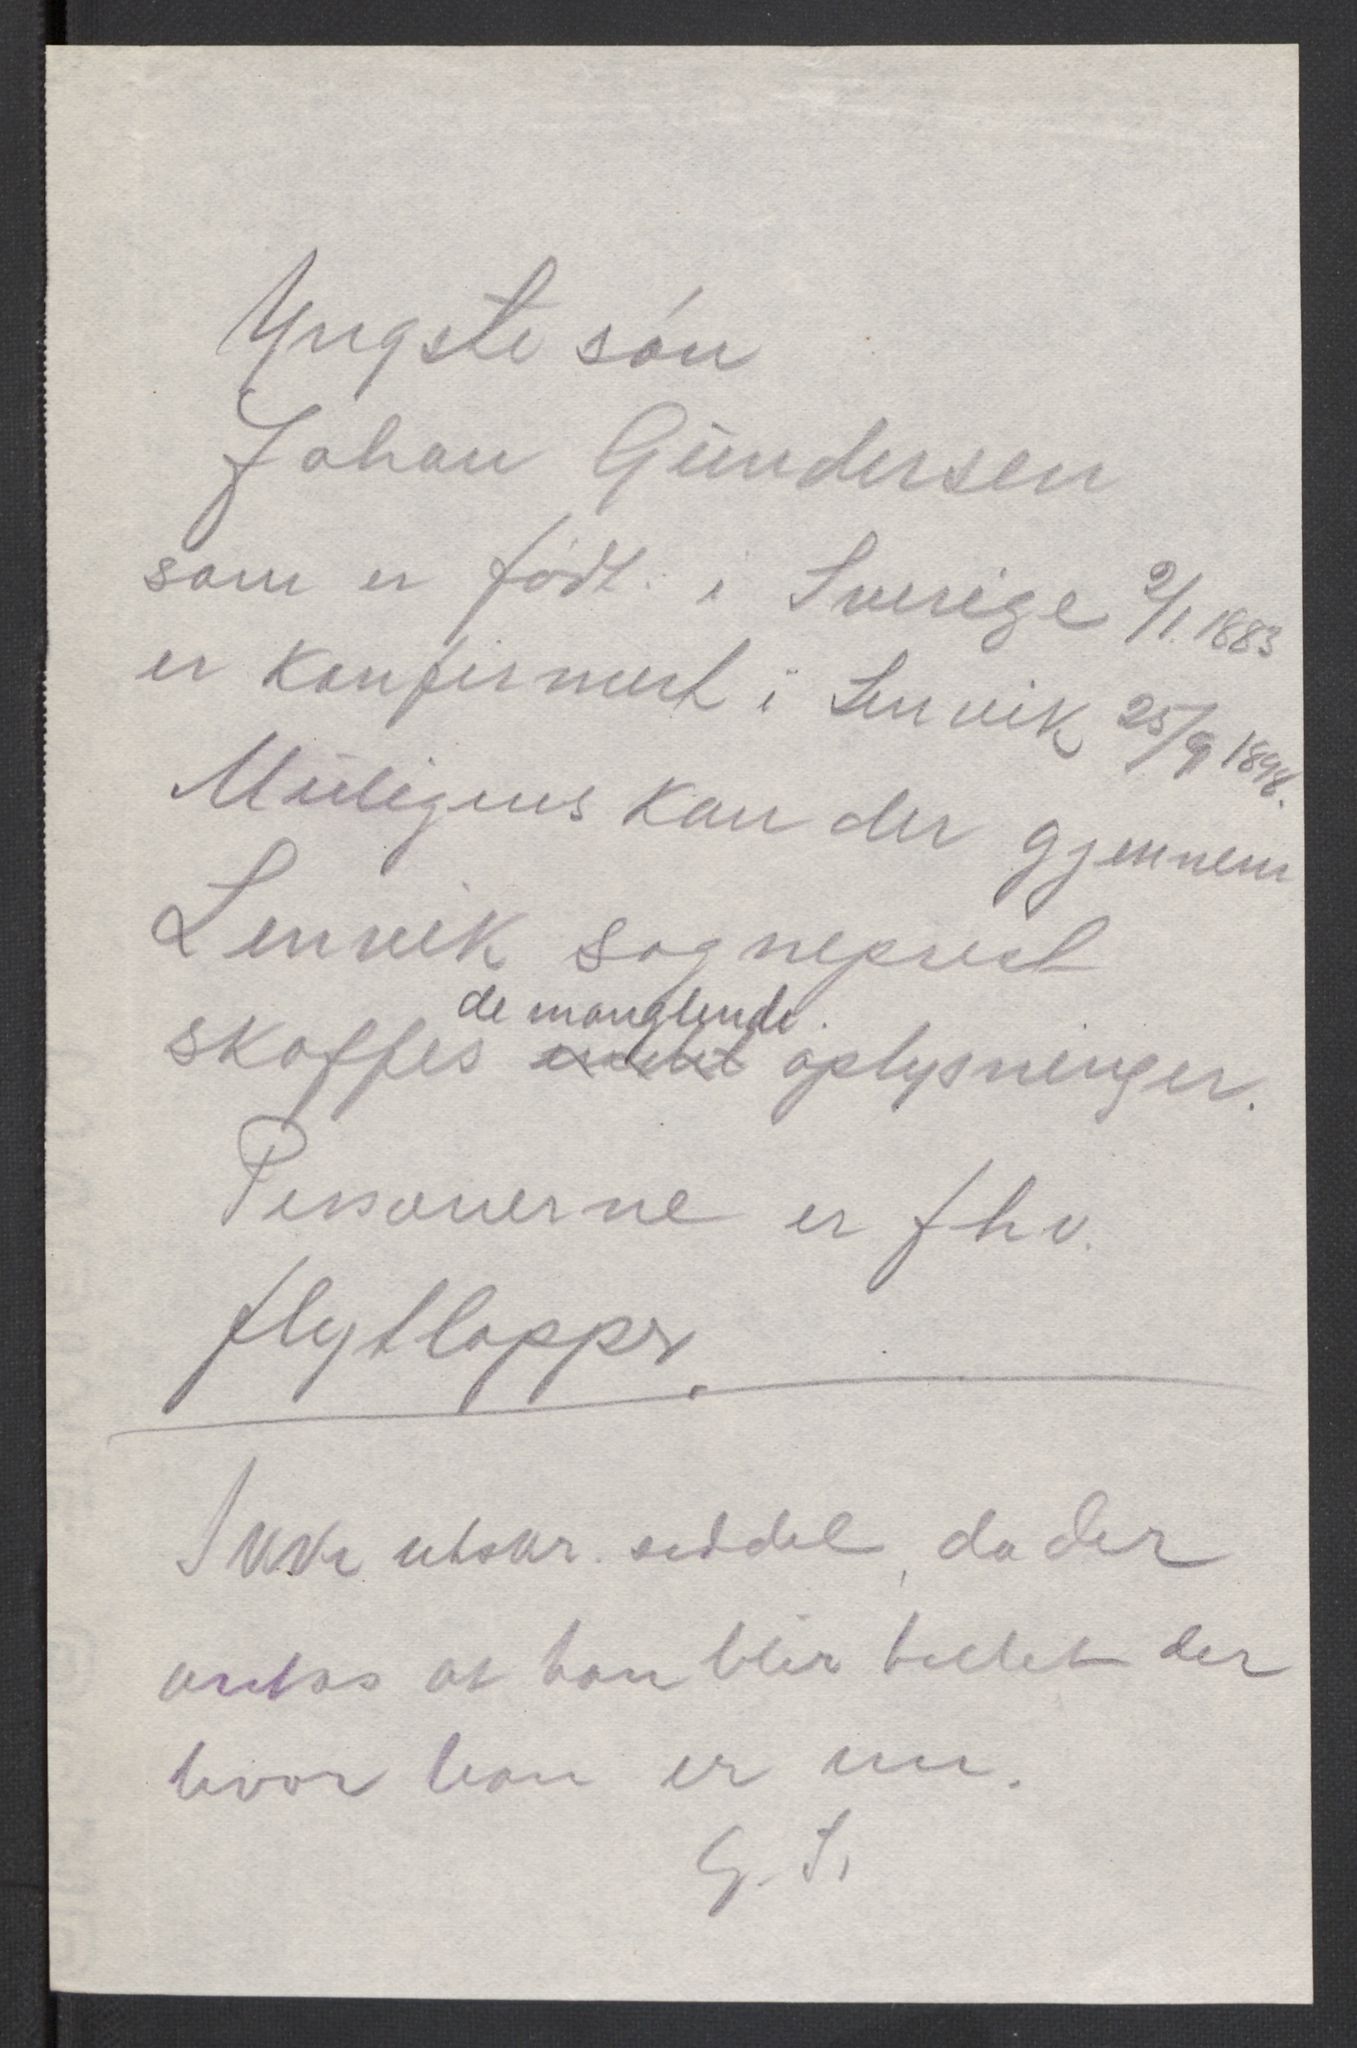 Yngste søn
Johan Gundersen
som er født i Sverige 2/1. 1883
er konfirmert i Lenvik 25/9 1898.
Muligens kan der gjennem
Lenvik sogneprest
de manglende
skaffes oplysninger.
Personerne er fhv.
flytlapper.
Ikke utskr. seddel, da der
antas at han blir tellet der
hvor han er nu.